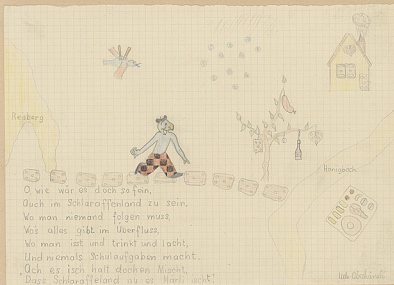 Reisberg
Honigbach
O, wie wär es doch so fein,
Auch im Schlaraffenland zu sein,
Wo man niemand folgen muss,
Wo's alles gibt im Überfluss,
Wo man isst und trinkt und lacht,
Und niemals Schulaufgaben macht.
Ach es isch halt dochen
Dass Schlaraffeland nu es Märli